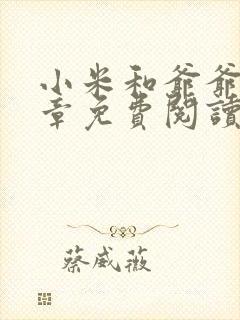 小米和爺爺
章免費閱讀
蔡威薇